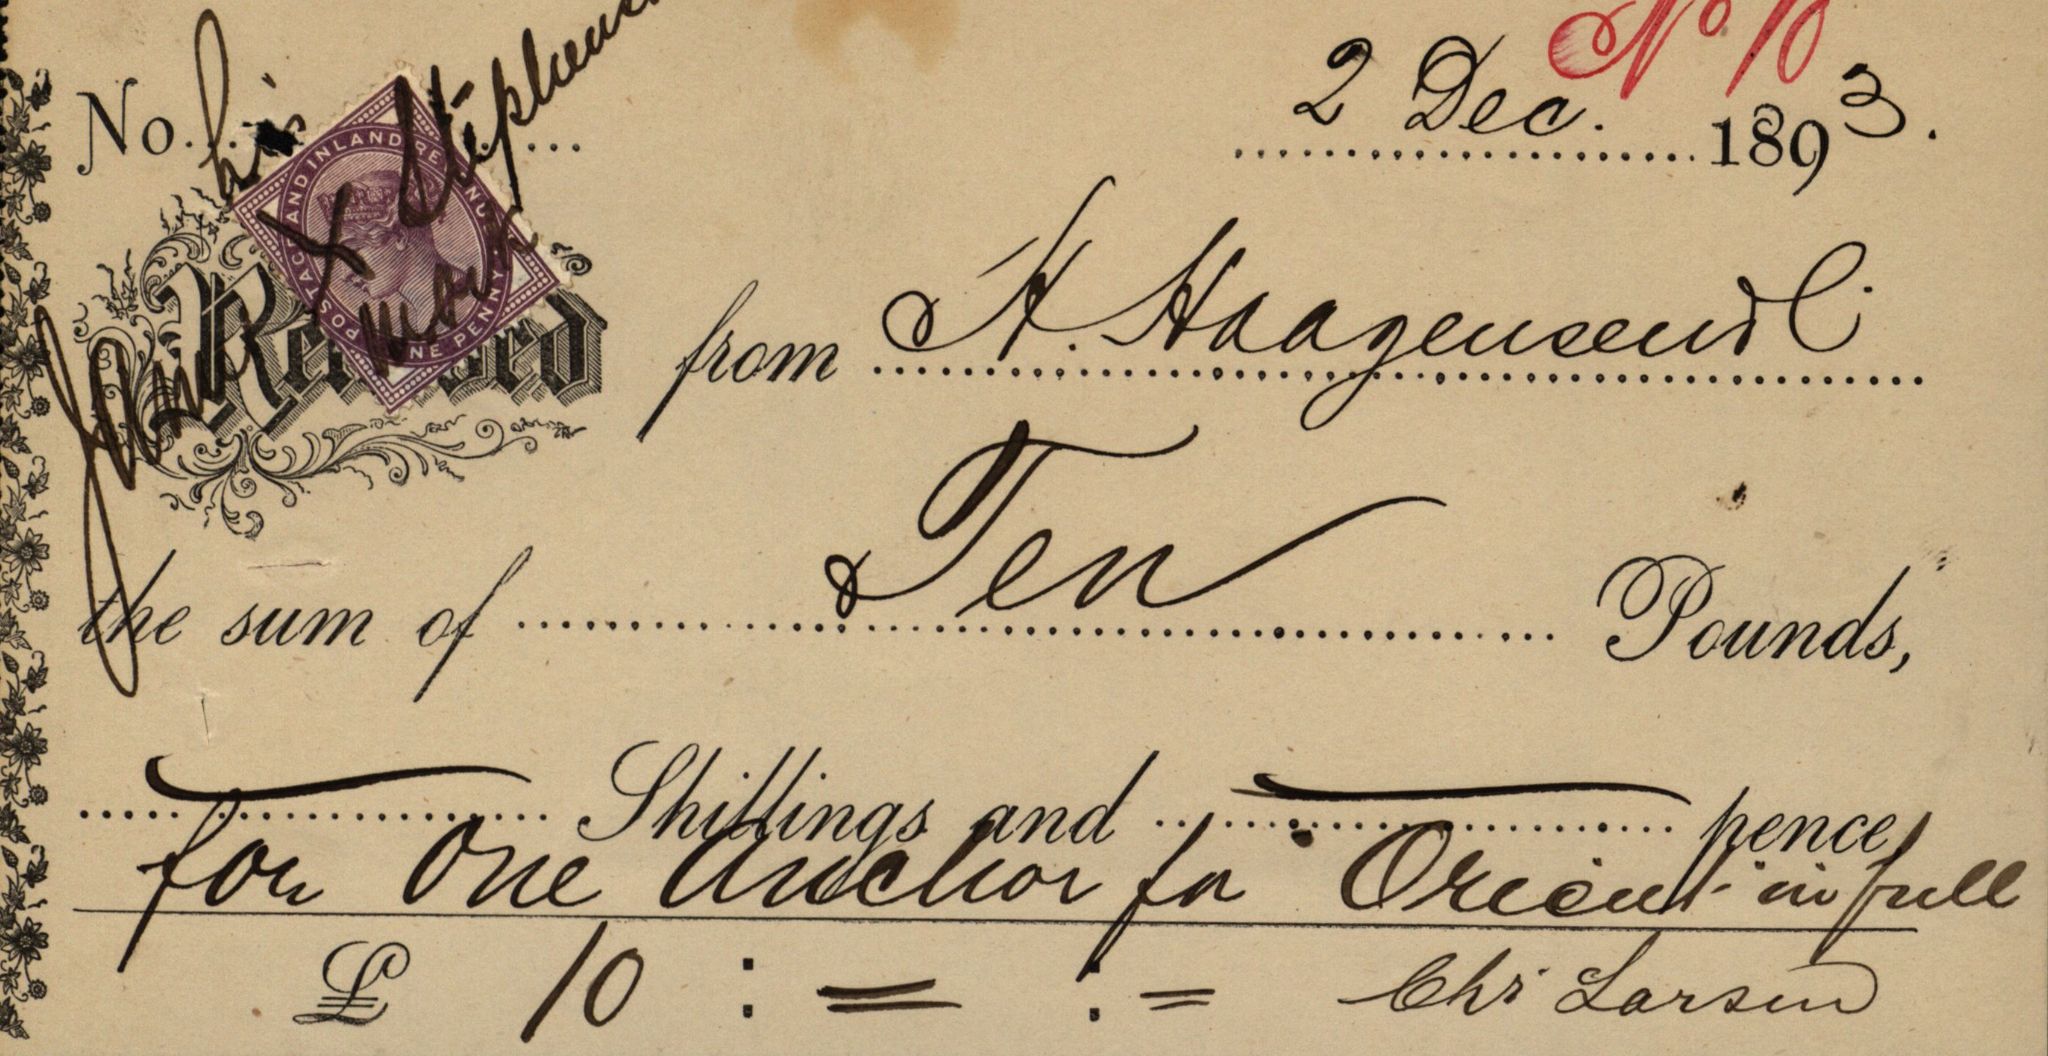 No 10
2 Dec. 1893.
No.
his
John X Stephens
mark
POSTAGE AND INLAND REVENUE
ONE PENNY
Received from H. Haagensen & C.
the sum of Ten Pounds,
Shillings and pence
for One Anchor for "Orient" in full
£ 10 : = : =
Chr Larsen